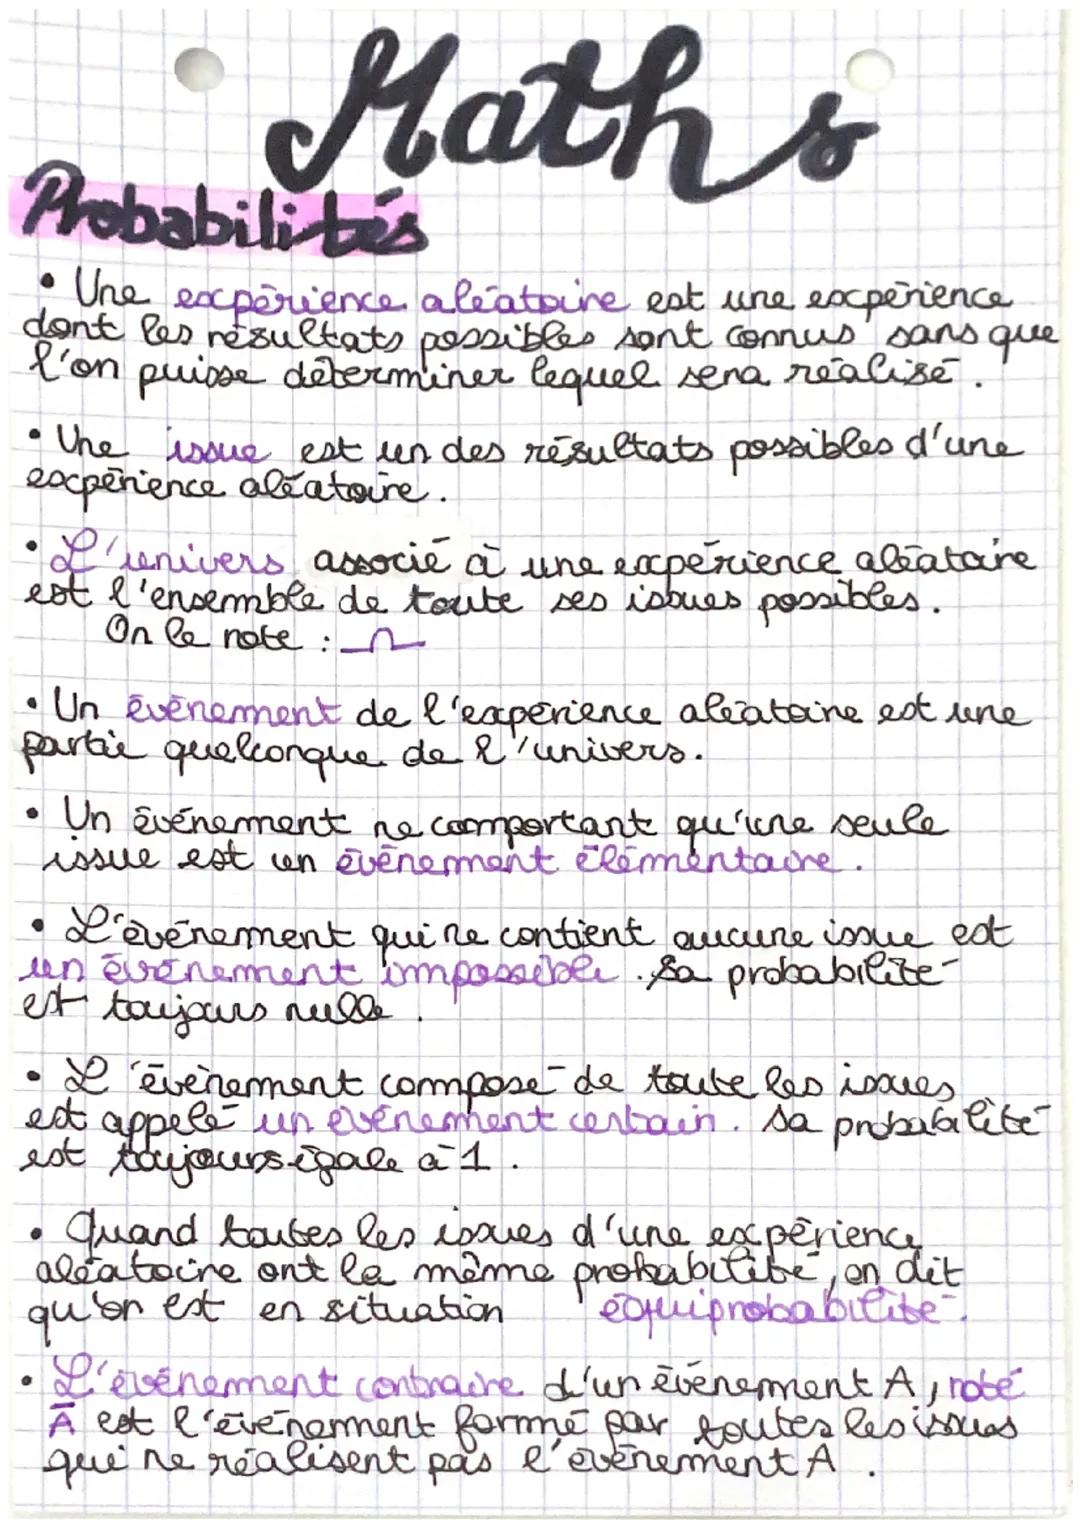 Maths
Probabilités
• Une expérience aléatoire est une expérience
dont les résultats possibles sont connus sans que
l'on puisse déterminer lequel sera réalisé.
• Une issue est un des résultats possibles d'une
expérience aléatoire.
• L'univers associé à une expérience aléatoire
est l'ensemble de toute ses issues possibles.
On le note : Ω
• Un événement de l'expérience aléatoire est une
partie quelconque de l'univers.
• Un événement ne comportant qu'une seule
issue est un événement élémentaire.
• L'événement qui ne contient aucune issue est
un événement impossible. Sa probabilité
est toujours nulle.
• L'événement composé de toute les issues
est appelé un événement certain. Sa probabilité
est toujours égale à 1.
• Quand toutes les issues d'une expérience
aléatoire ont la même probabilité, on dit
qu'on est en situation équiprobabilité.
• L'événement contraire d'un événement A, noté
Ā est l'événement formé par toutes les issues
qui ne réalisent pas l'événement A.